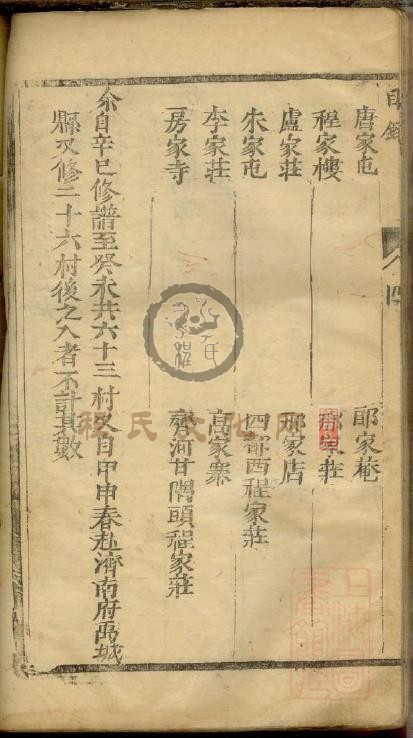 目錄
唐家屯
程家樓
盧家莊
朱家屯
李家莊
房家寺
郎家菴
家莊
邢家店
四都西程家莊
高家寨
齊河甘隅頭程家莊
余自辛巳修譜至癸未共六十三村又自甲申春赴濟南府禹城
縣又修二十六村後之入者不計其數
四
程氏文化网
程氏
上海圖書館藏